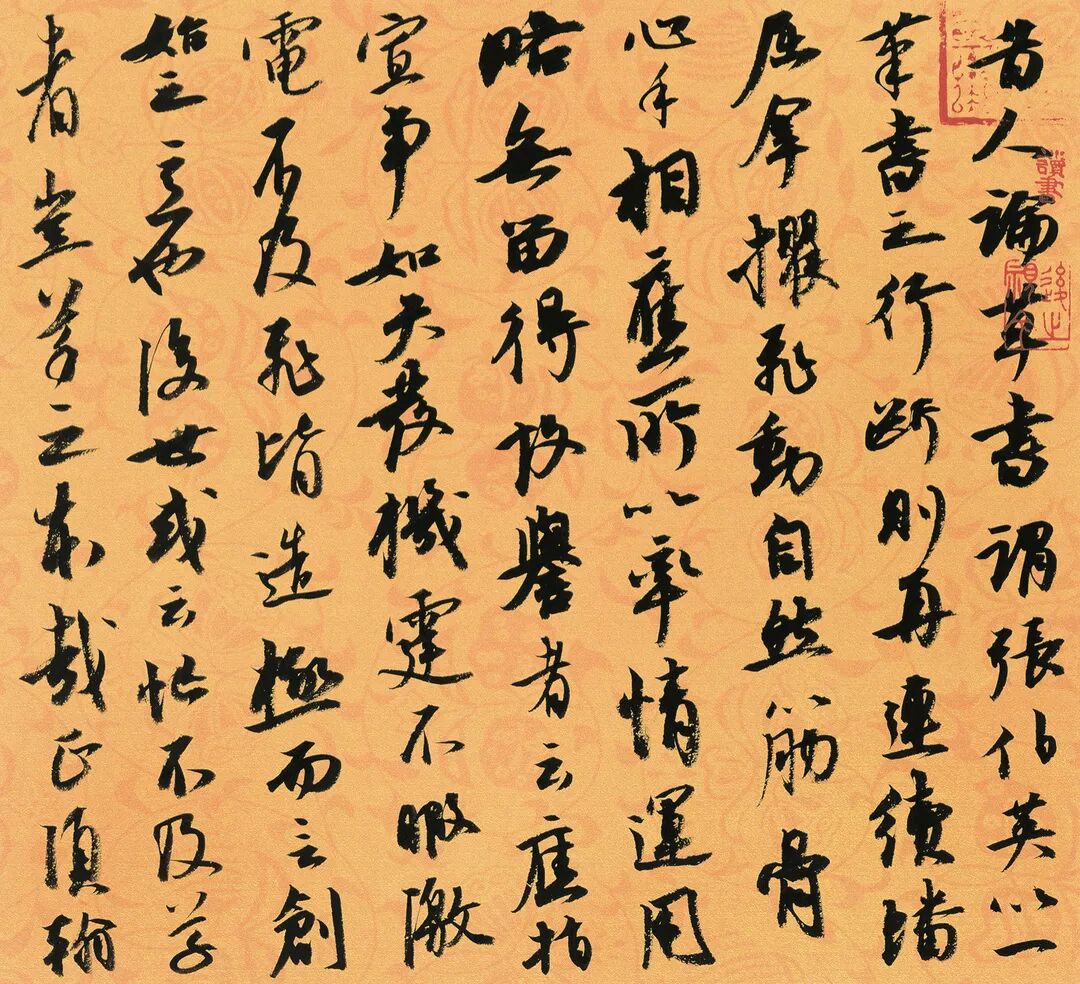 昔人論草書謂張伯英以一
筆書之行斷則再連續蟠
屈拏攫飛動自然筋骨
心手相應所以率情運用
略無留得故譽者云應指
宣事如矢發機霆不暇激
電不及飛皆造極而言創
始之言也後世或云忙不及草
者豈草之本哉正須翰
讀書